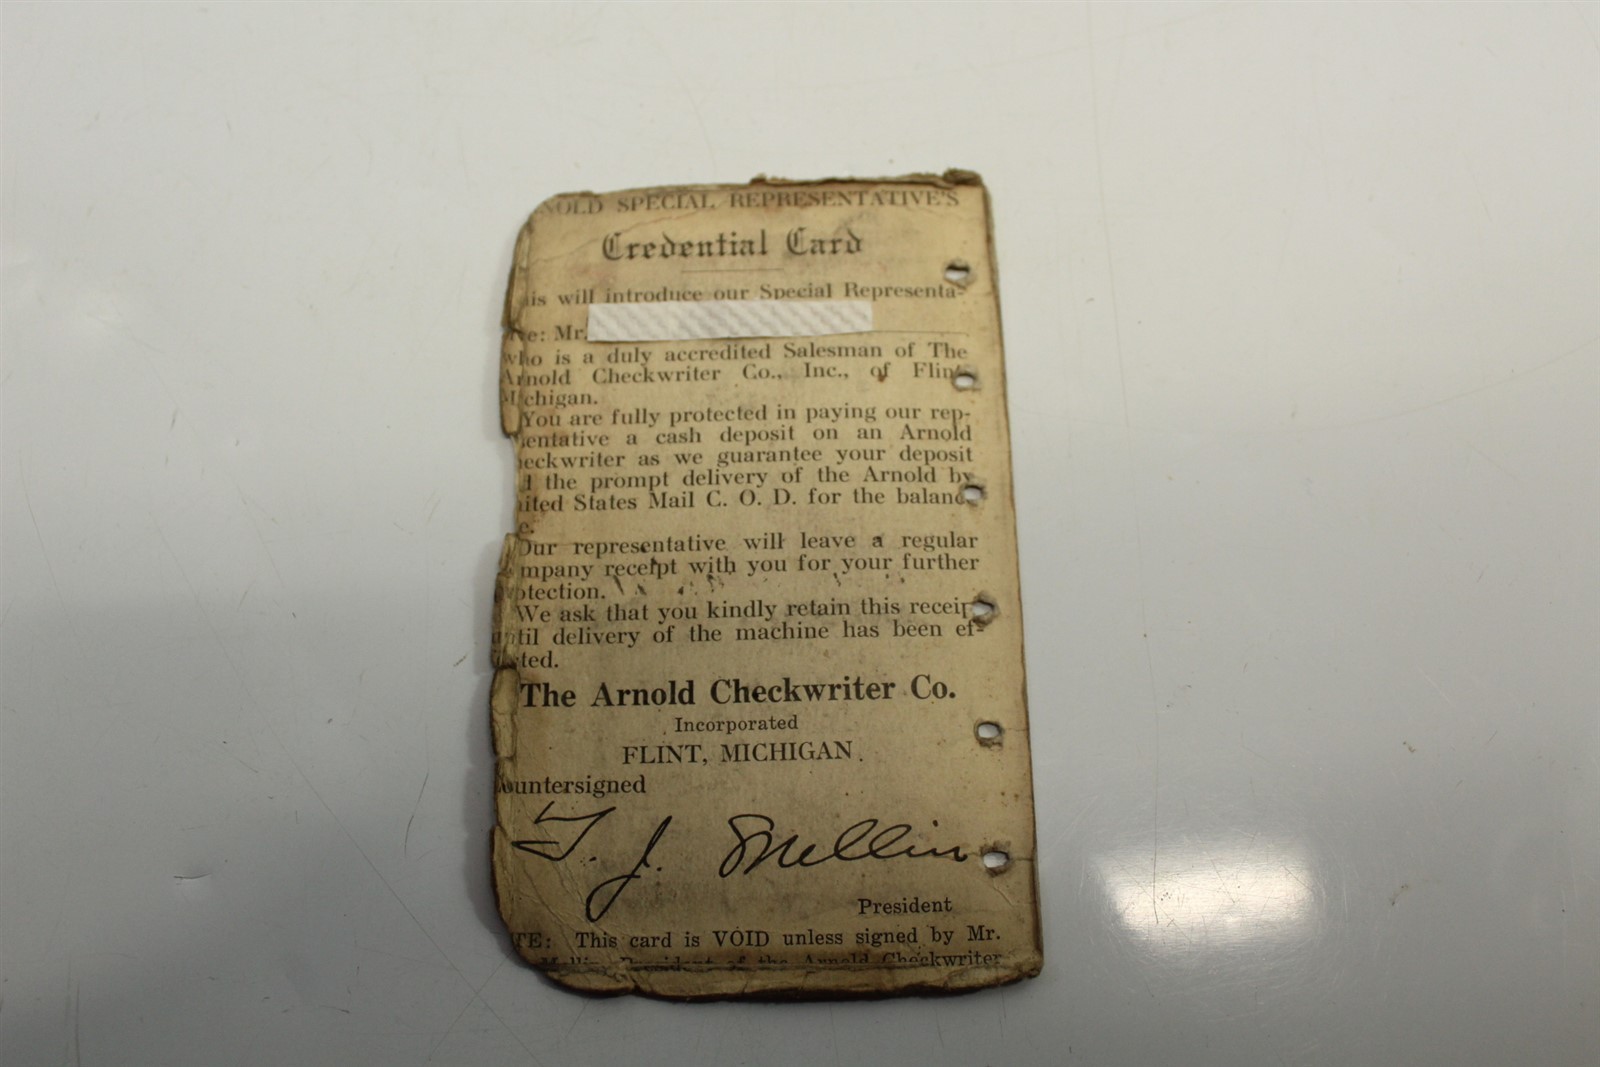 NOLD SPECIAL REPRESENTATIVE'S
Credential Card
is will introduce our Special Representa-
ve: Mr.
who is a duly accredited Salesman of The
Arnold Checkwriter Co., Inc., of Flint,
Michigan.
You are fully protected in paying our rep-
sentative a cash deposit on an Arnold
eckwriter as we guarantee your deposit
d the prompt delivery of the Arnold by
ited States Mail C. O. D. for the balanc
e.
Our representative will leave a regular
mpany receipt with you for your further
otection.
We ask that you kindly retain this receip
until delivery of the machine has been ef-
cted.
The Arnold Checkwriter Co.
Incorporated
FLINT, MICHIGAN.
ountersigned
T. J. Mellin
President
TE: This card is VOID unless signed by Mr.
Mellin, President of the Arnold Checkwriter